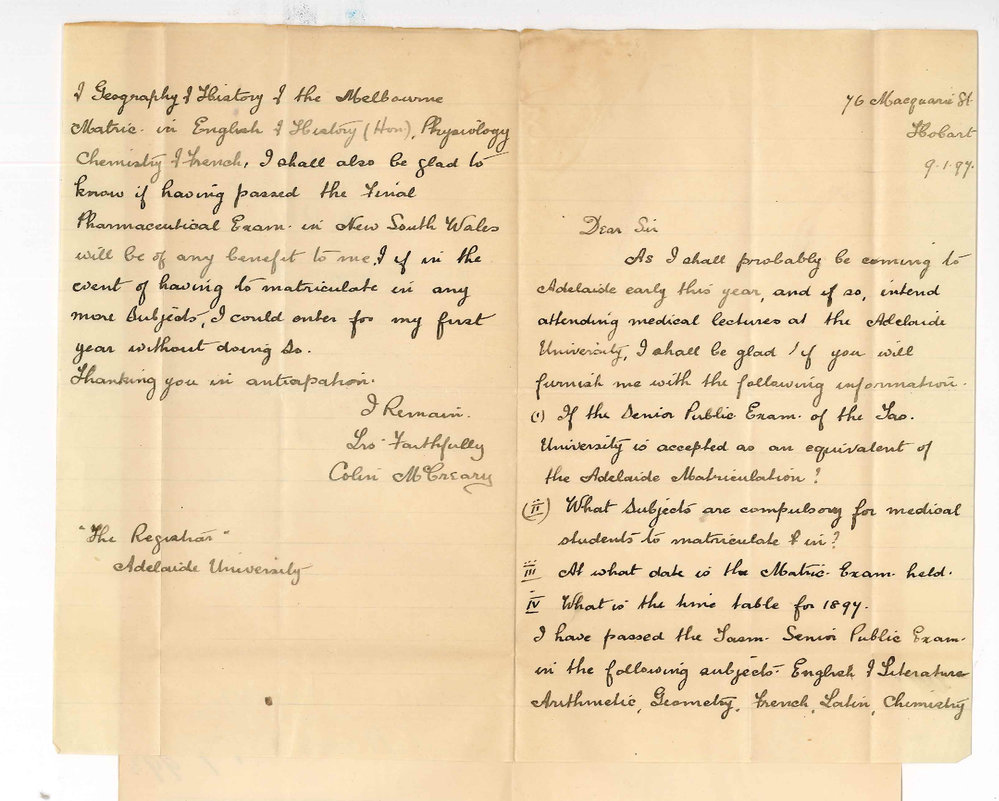 76 Macquarie St
Hobart
9.1.97.
Dear Sir
As I shall probably be coming to
Adelaide early this year, and if so, intend
attending medical lectures at the Adelaide
University, I shall be glad if you will
furnish me with the following information.
(1) If the Senior Public Exam. of the Tas.
University is accepted as an equivalent of
the Adelaide Matriculation?
(ii) What Subjects are compulsory for medical
students to matriculate in?
iii At what date is the Matric. Exam. held.
iv What is the time table for 1897.
I have passed the Tasm. Senior Public Exam.
in the following subjects. English & Literature
Arithmetic, Geometry, French, Latin, Chemistry
& Geography & History & the Melbourne
Matric. in English & History (Hon), Physiology
Chemistry & French. I shall also be glad to
know if having passed the Final
Pharmaceutical Exam. in New South Wales
will be of any benefit to me, & if in the
event of having to matriculate in any
more Subjects, I could enter for my first
year without doing so.
Thanking you in anticipation.
I Remain.
Yrs Faithfully
Colin McCreary
"The Registrar"
Adelaide University